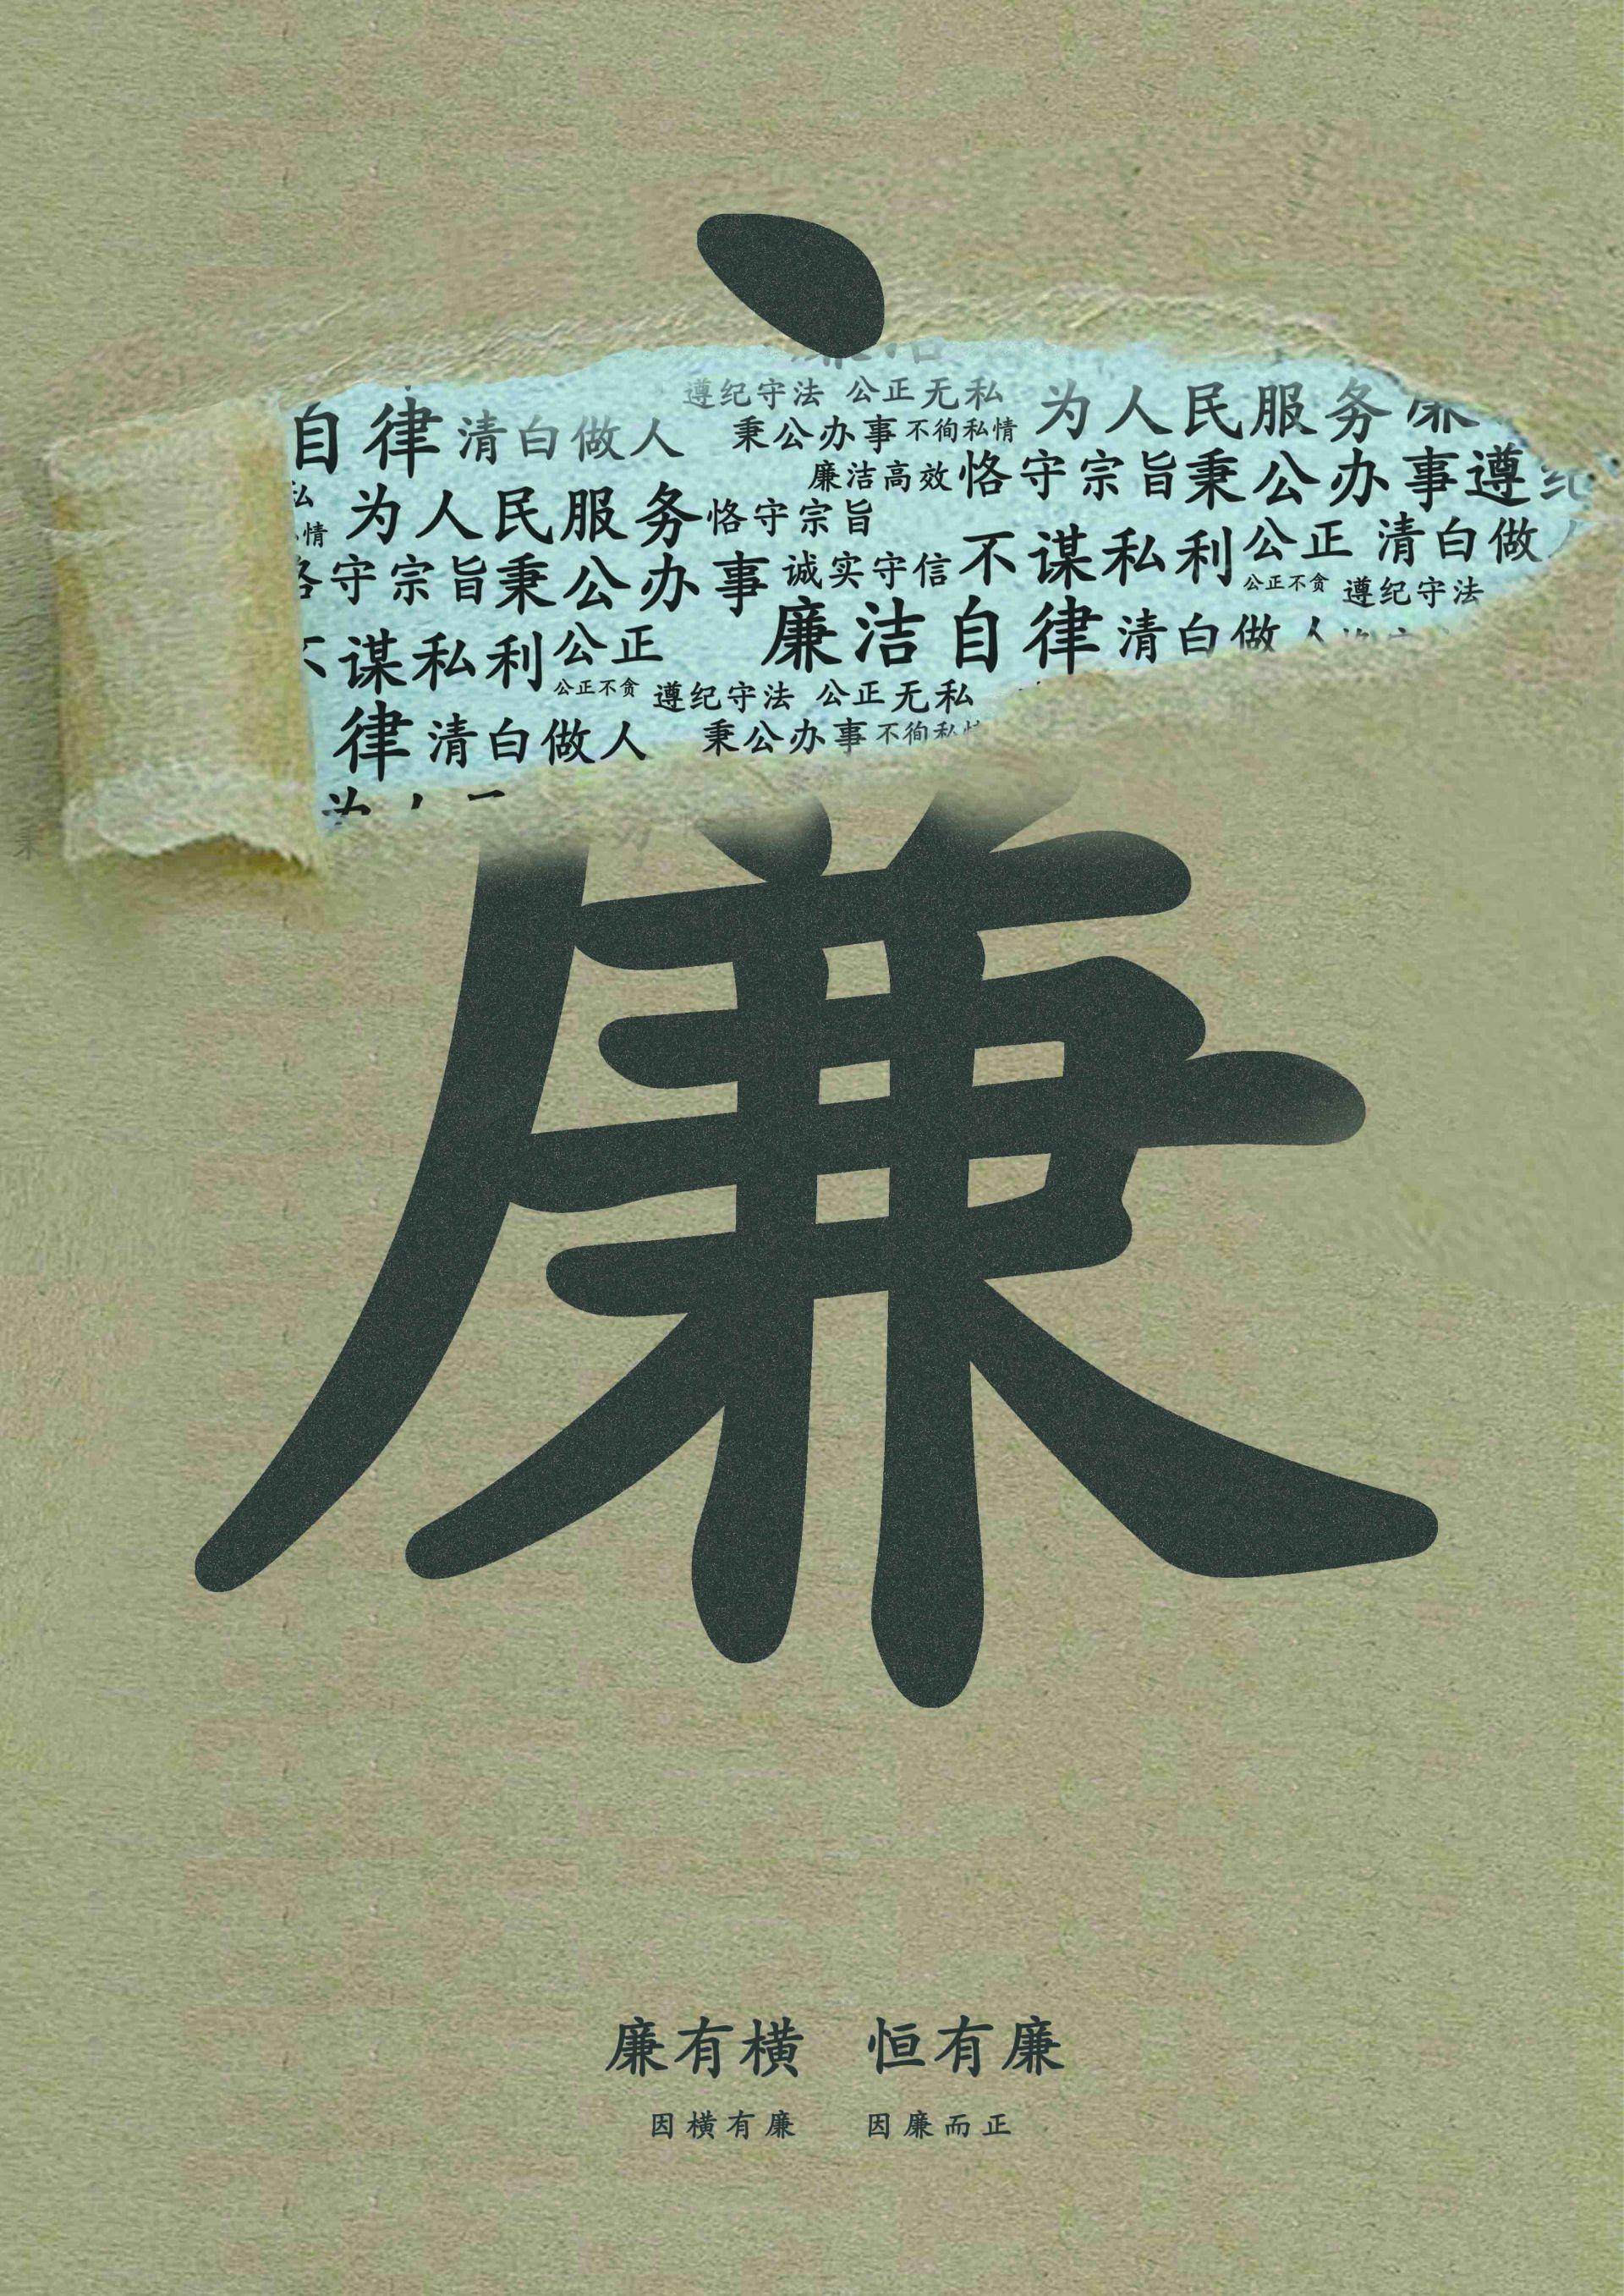 遵纪守法 公正无私 为人民服务
自律 清白做人 秉公办事 不徇私情
廉洁高效 恪守宗旨 秉公办事 遵纪
为人民服务 恪守宗旨
情
守宗旨 秉公办事 诚实守信 不谋私利 公正 清白做
公正不贪 遵纪守法
谋私利 公正 廉洁自律 清白做人
公正不贪 遵纪守法 公正无私
律 清白做人 秉公办事 不徇私情
廉
廉有横 恒有廉
因横有廉 因廉而正